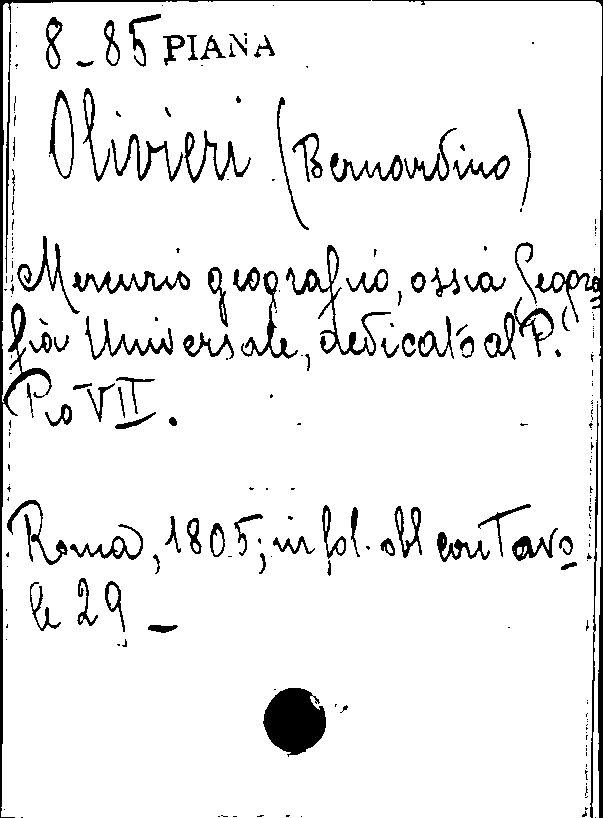 8_85 PIANA
Olivieri (Bernardino)
Mercurio geografico, ossia Geogra
fia Universale, dedicato al P.
Pio VII.
Roma, 1805; in fol. obl con Tavo
le 29_